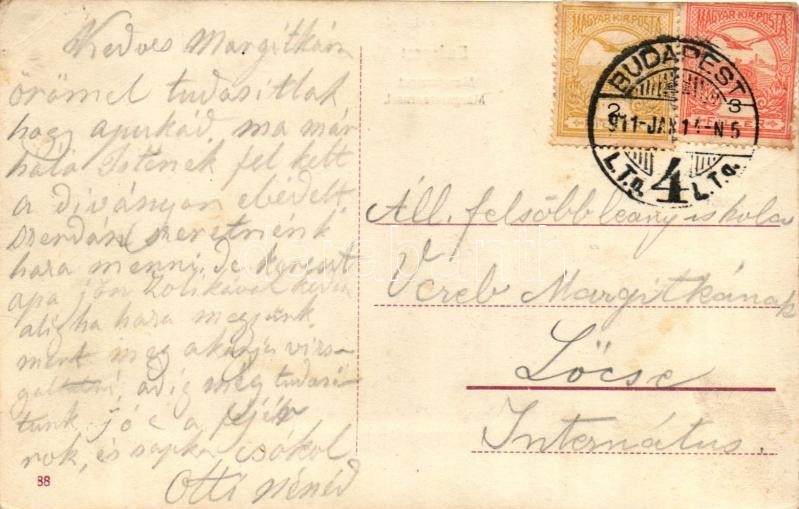 Kedves Margitkám
örömel tudasitlak
hogy apukád ma már
hála Istenek fel kelt
a díványon ebédelt
szerdán szeretnénk
haza menni, de kereszt
apa jön Zolikával
alig ha haza megyünk
mert meg akarja vizs-
gáltatni, adig meg tudasi-
tunk, jó c a
rok, és sapka csókol
Otti nénéd
88
MAGYAR KIR. POSTA
MAGYAR KIR. POSTA
BUDAPEST
2 3
911-JAN 14-N5
L.T.a. 4 L.T.a.
Áll. felsőbb leány iskola
V.
Vereb Margitkának
Lőcse
Internátus.
darabanth